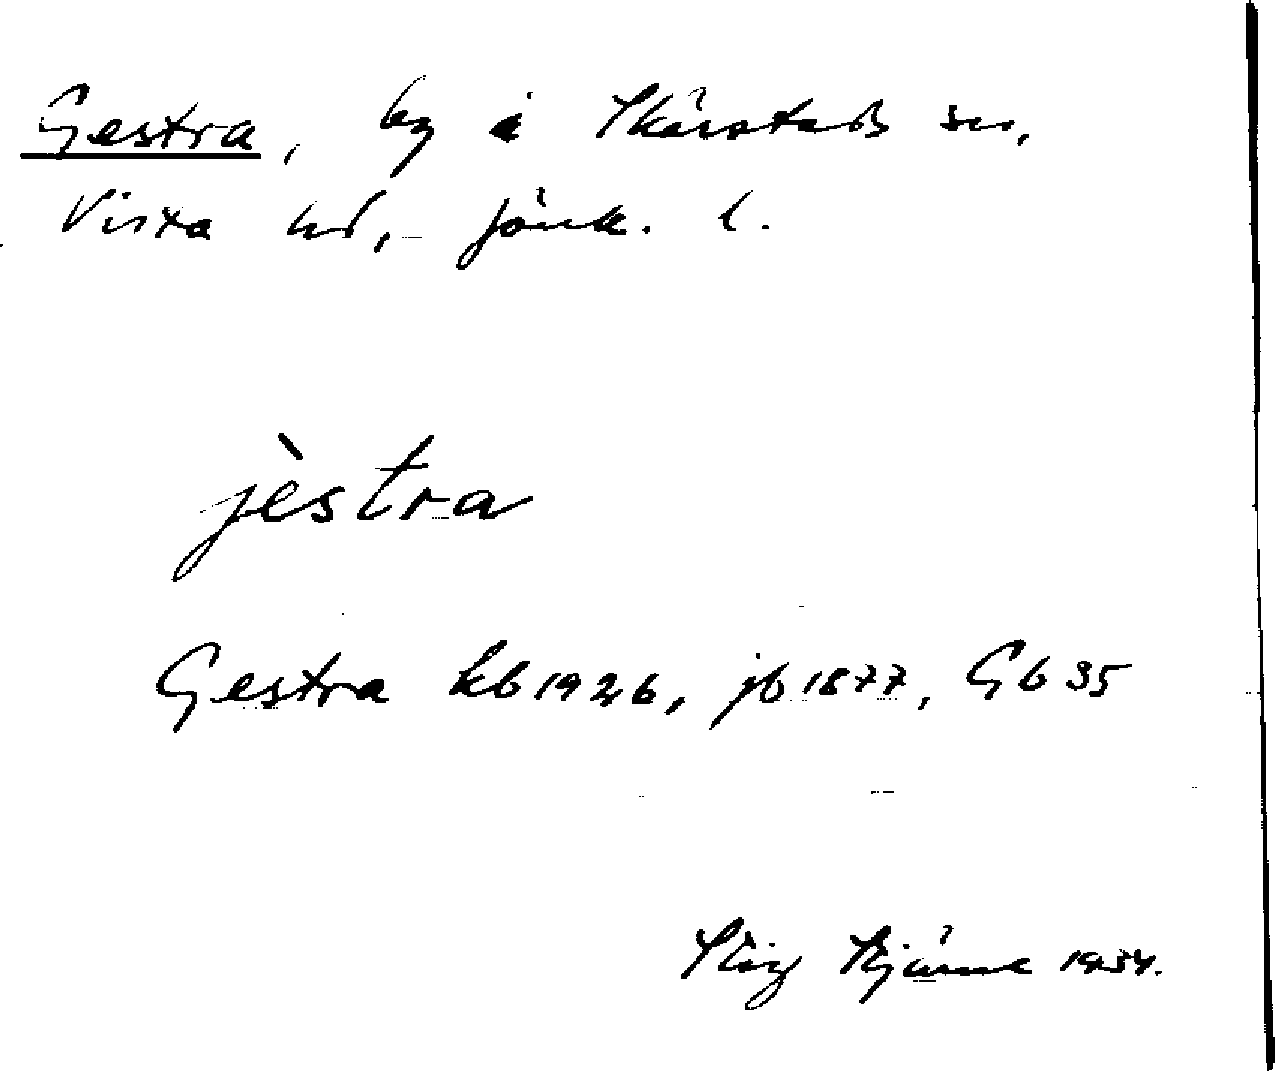 Gestra, by i Skärstads sn,
Vista hd, Jönk. l.
jèstra
Gestra kb 1926, jb 1877, Gb 35
Stig Hjärne 1934.